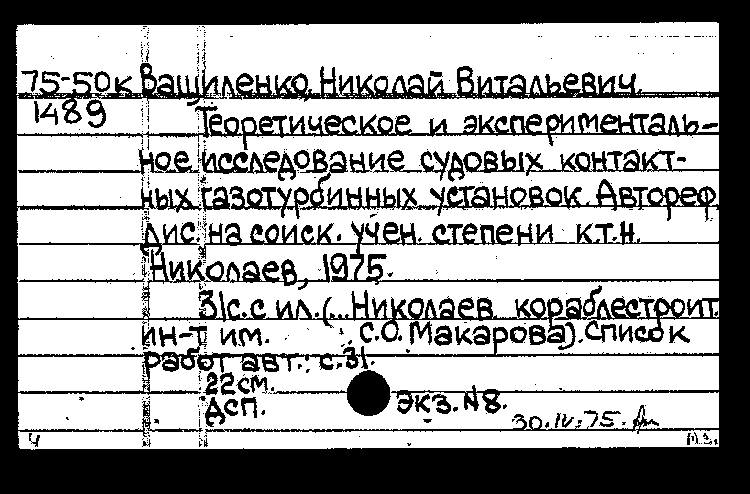 75-50к Ващиленко, Николай Витальевич.
1489 Теоретическое и эксперименталь-
ное исследование судовых контакт-
ных газотурбинных установок. Автореф.
дис. на соиск. учен. степени к.т.н.
Николаев, 1975.
31с. с ил. (...Николаев. кораблестроит.
ин-т им. С.О. Макарова). Список
работ авт.: с.31.
22см.
ДСП. Экз. №8.
30.IV.75.
Ч М.З.